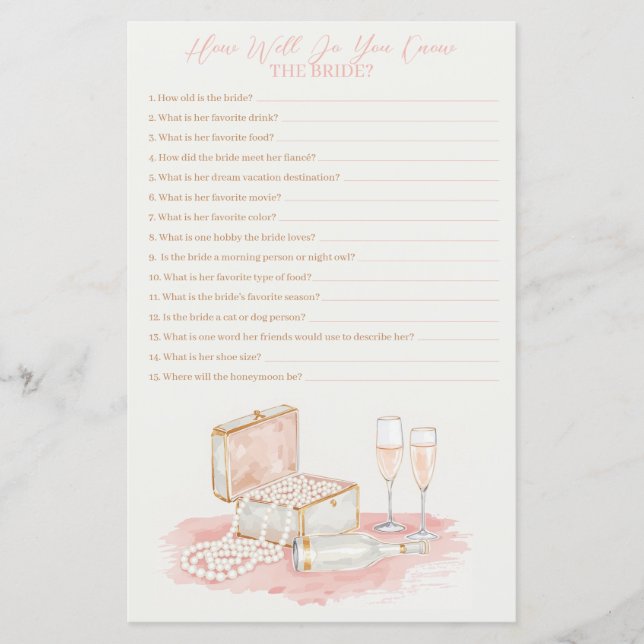 How Well Do You Know
THE BRIDE?
1. How old is the bride?
2. What is her favorite drink?
3. What is her favorite food?
4. How did the bride meet her fiancé?
5. What is her dream vacation destination?
6. What is her favorite movie?
7. What is her favorite color?
8. What is one hobby the bride loves?
9. Is the bride a morning person or night owl?
10. What is her favorite type of food?
11. What is the bride's favorite season?
12. Is the bride a cat or dog person?
13. What is one word her friends would use to describe her?
14. What is her shoe size?
15. Where will the honeymoon be?